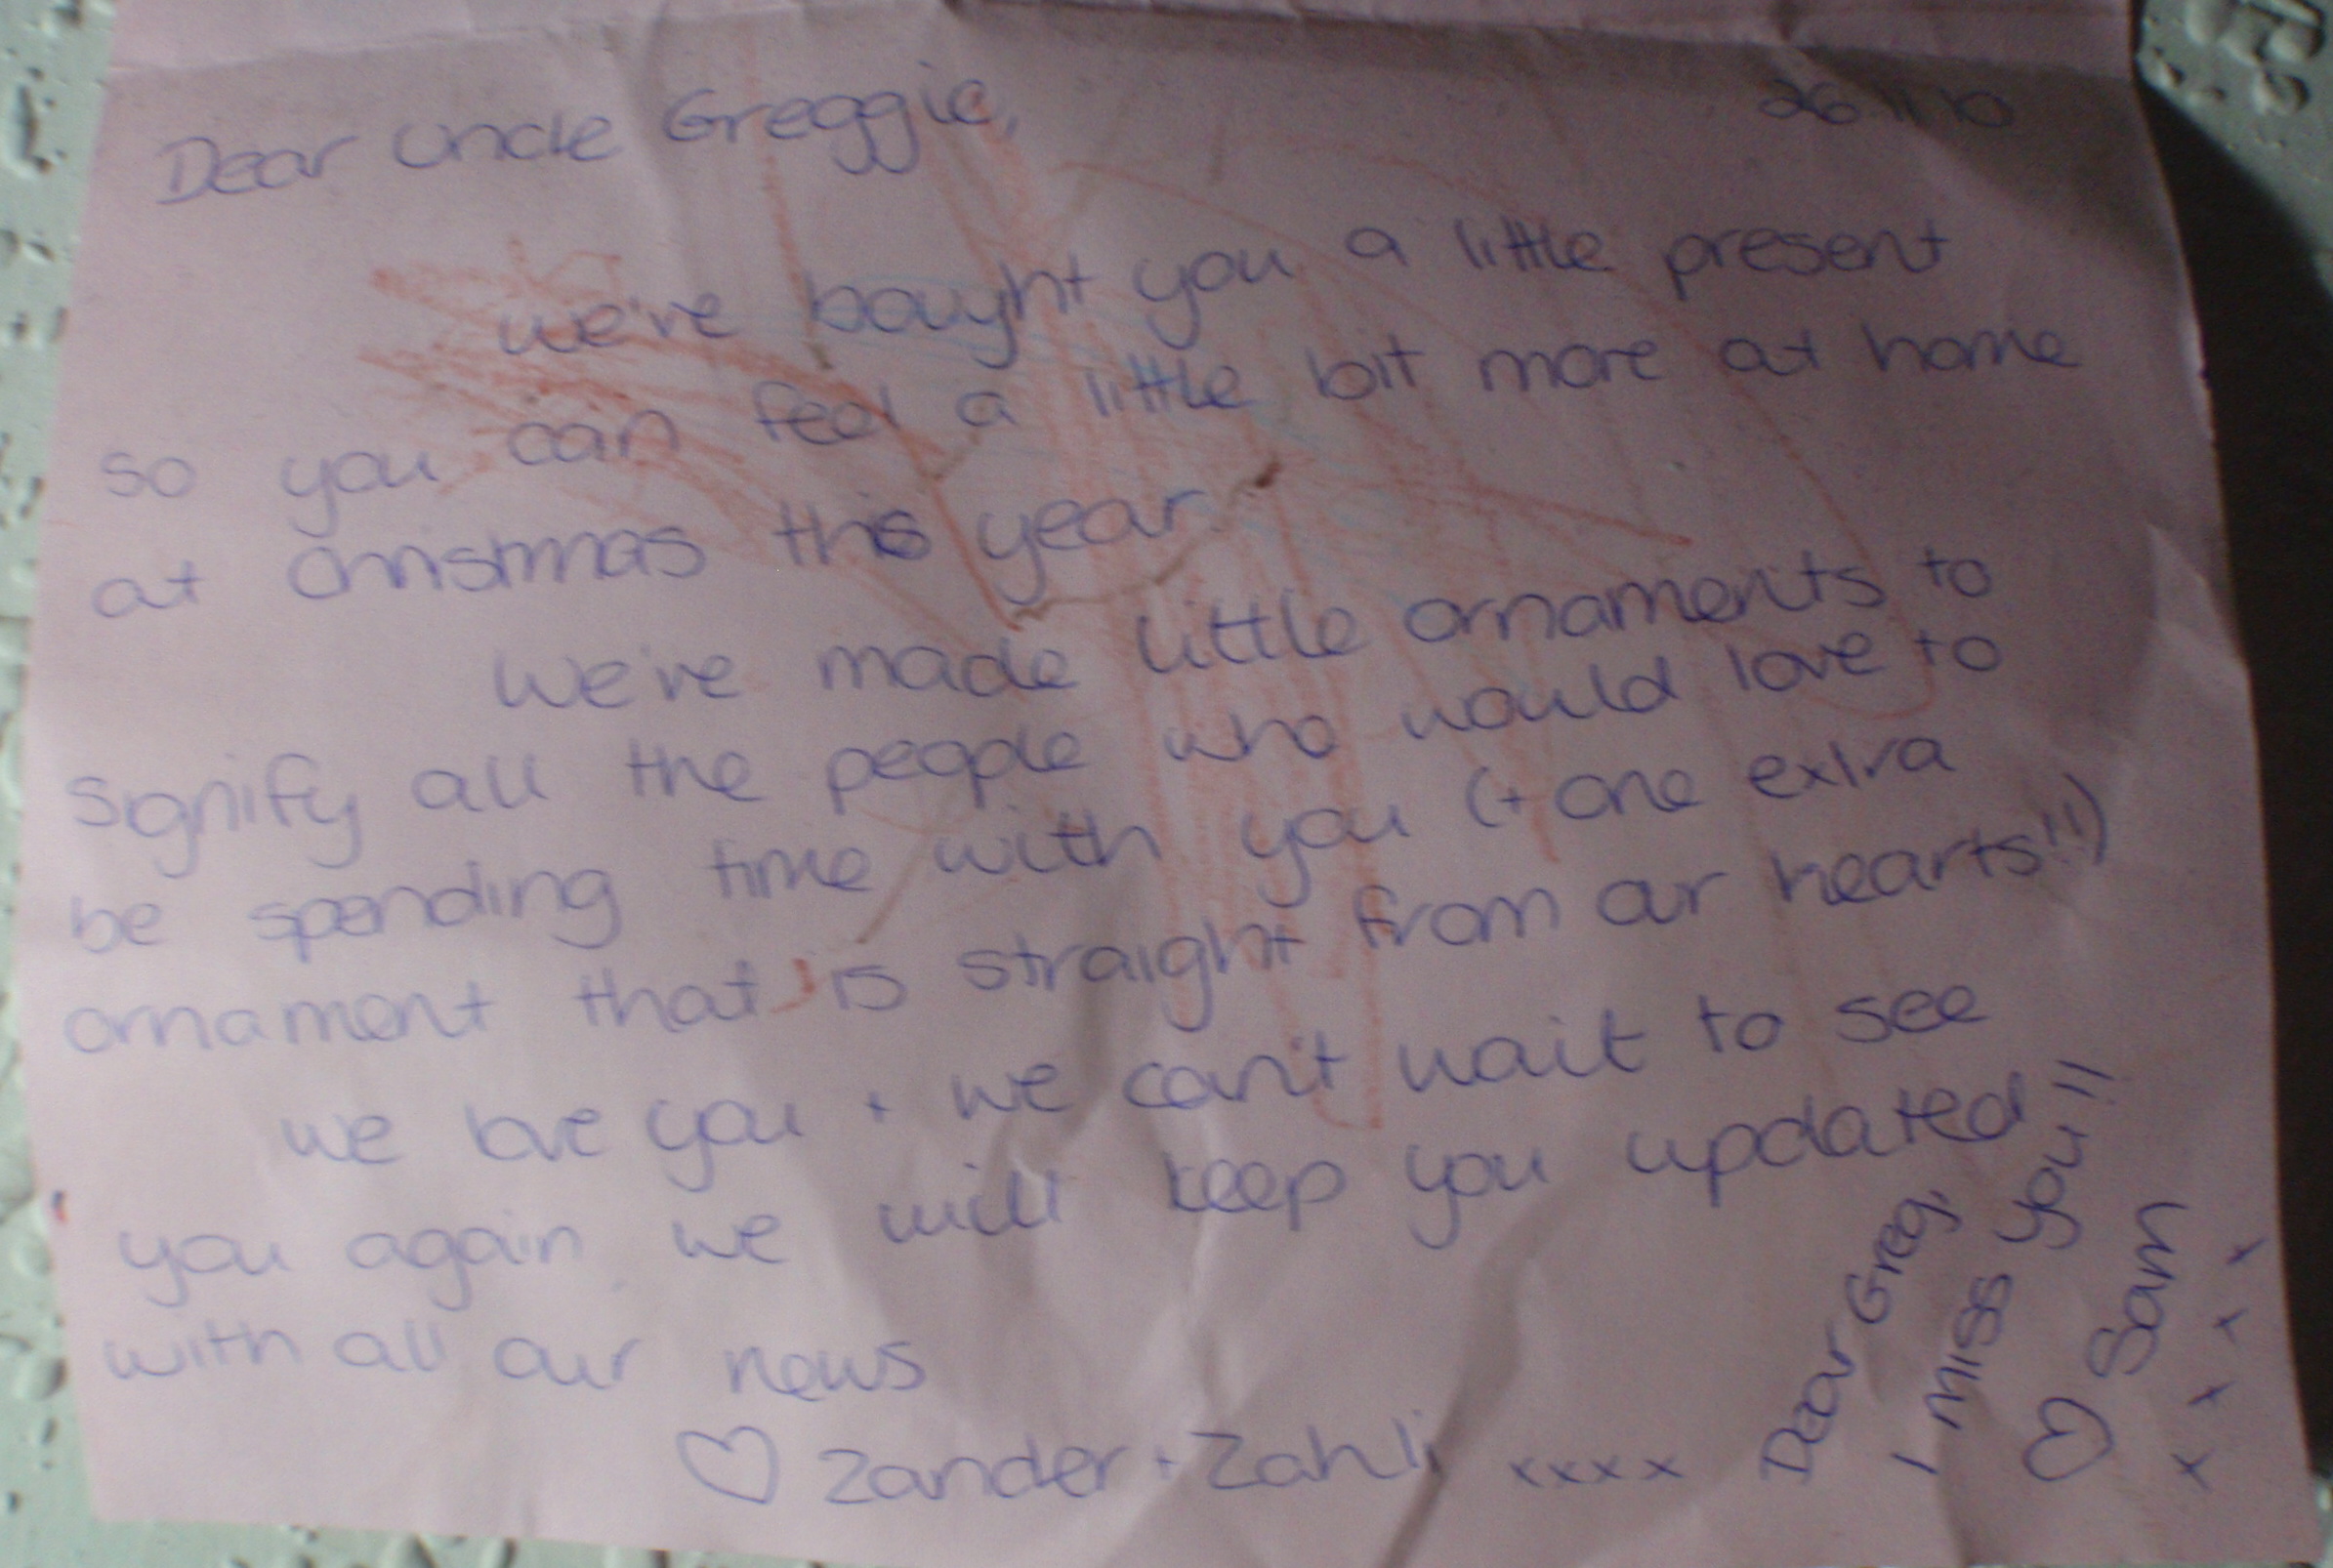 Dear Uncle Greggie,
26 11 10
we've bought you a little present
so you can feel a little bit more at home
at Christmas this year.
We've made little ornaments to
signify all the people who would love to
be spending time with you (+ one extra
ornament that is straight from our hearts!!)
we love you + we can't wait to see
you again. we will keep you updated
with all our news
♡ Zander + Zahli xxxx
Dear Greg,
I miss you!!
♡ Sam
x x x x